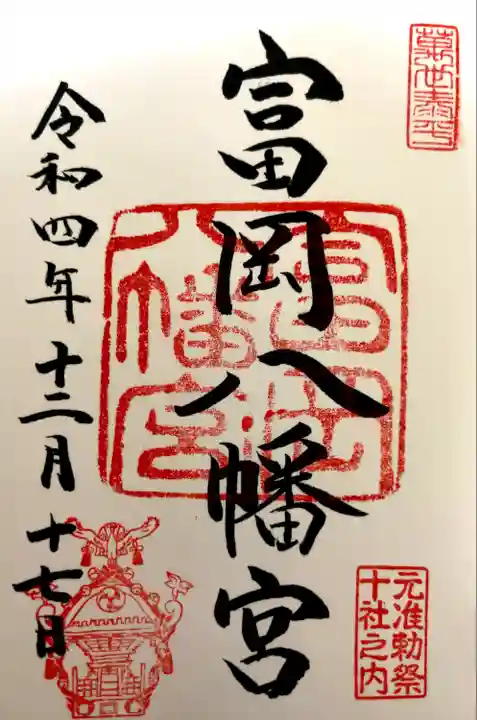 萬世泰平
富岡八幡宮
元准勅祭
十社之内
令和四年十二月十七日